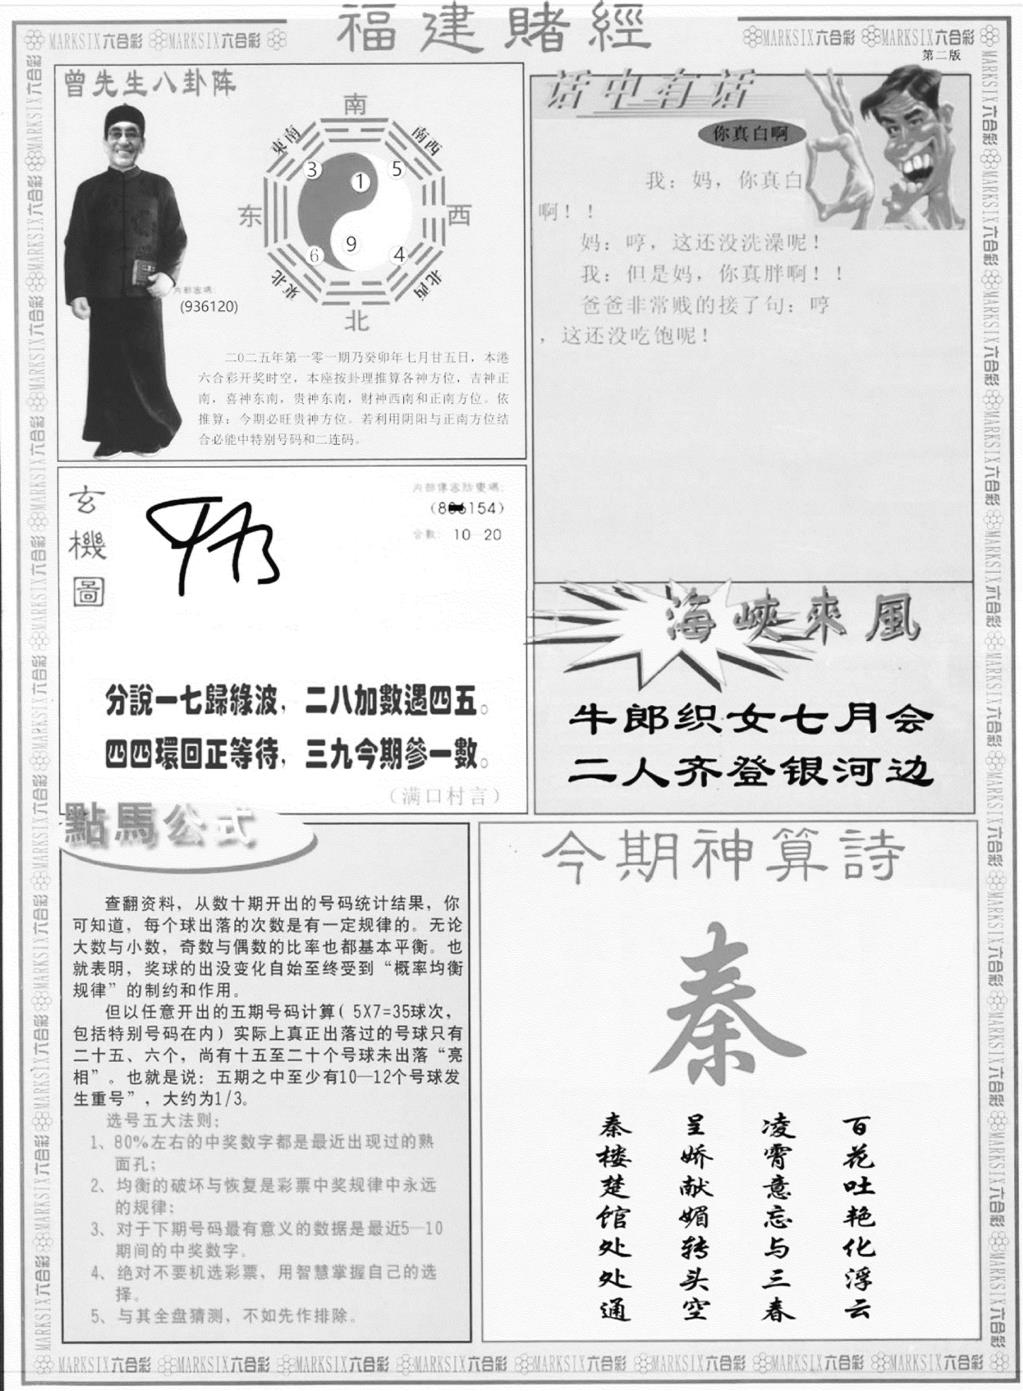 福建賭經
MARKSIX六合彩 MARKSIX六合彩
MARKSIX六合彩 MARKSIX六合彩
第二版
曾先生八卦阵
南
東南
南西
3
1
5
东
西
6
9
4
東北
北西
北
内部密碼:
(936120)
二0二五年第一零一期乃癸卯年七月廿五日，本港
六合彩开奖时空，本座按卦理推算各神方位，吉神正
南，喜神东南，贵神东南，财神西南和正南方位。依
推算：今期必旺贵神方位。若利用阴阳与正南方位结
合必能中特别号码和二连码。
话中有话
你真白啊
我：妈，你真白
啊！！
妈：哼，这还没洗澡呢！
我：但是妈，你真胖啊！！
爸爸非常贱的接了句：哼
，这还没吃饱呢！
玄機圖
(8 6154)
合數: 10—20
分說一七歸綠波，二八加數遇四五。
四四環回正等待，三九今期參一數。
（满口村言）
海峽來風
牛郎织女七月会
二人齐登银河边
點馬公式
查翻资料，从数十期开出的号码统计结果，你
可知道，每个球出落的次数是有一定规律的。无论
大数与小数，奇数与偶数的比率也都基本平衡。也
就表明，奖球的出没变化自始至终受到“概率均衡
规律”的制约和作用。
但以任意开出的五期号码计算( 5X7=35球次，
包括特别号码在内）实际上真正出落过的号球只有
二十五、六个，尚有十五至二十个号球未出落“亮
相”。也就是说：五期之中至少有10—12个号球发
生重号”，大约为1/3。
选号五大法则：
1、80%左右的中奖数字都是最近出现过的熟
面孔；
2、均衡的破坏与恢复是彩票中奖规律中永远
的规律；
3、对于下期号码最有意义的数据是最近5—10
期间的中奖数字。
4、绝对不要机选彩票，用智慧掌握自己的选
择。
5、与其全盘猜测，不如先作排除。
今期神算詩
秦
百花吐艳化浮云
凌霄意忘与三春
呈娇献媚转头空
秦楼楚馆处处通
MARKSIX六合彩 MARKSIX六合彩 MARKSIX六合彩 MARKSIX六合彩 MARKSIX六合彩 MARKSIX六合彩 MARKSIX六合彩 MARKSIX六合彩